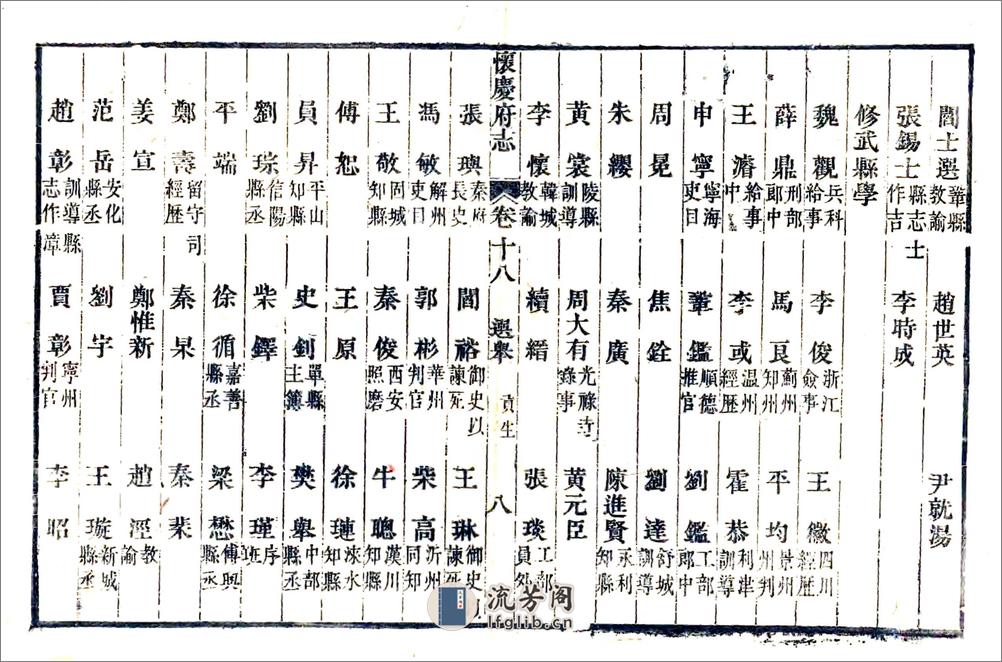 閻士選鞏縣教諭 趙世英 尹就湯
張錫士縣志士作吉 李時成
修武縣學
魏觀兵科給事 李俊浙江僉事 王徽四川經歷
薛鼎刑部郎中 馬良薊州知州 平均景州州判
王濬給事中 李彧溫州經歷 霍恭利津訓導
申寧寧海吏目 鞏鑑順德推官 劉鑑工部郎中
周冕 焦銓 劉達舒城訓導
朱纓 秦廣 陳進賢永利知縣
黃裳陵縣訓導 周大有光祿寺錄事 黃元臣
李懷韓城教諭 續縉 張琰工部員外
懷慶府志 卷十八 選舉 貢生 八
張璵秦府長史 閻裕御史以諫死 王琳御史諫死
馮敏解州吏目 郭彬華州判官 柴高沂州同知
王敬固城知縣 秦俊西安照磨 牛聰漢川知縣
傅恕 王原 徐璉淶水
員昇平山知縣 史釗單縣主簿 樊舉中部縣丞
劉琮信陽縣丞 柴鐸 李瑾序班
平端 徐循嘉善縣丞 梁懋博興縣丞
鄭壽留守司經歷 秦杲 秦棐
姜宣 鄭惟新 趙涇教諭
范岳安化縣丞 劉宇 王璇新城縣丞
趙彰訓導縣志作漳 賈彰寧州判官 李昭
流芳阁
lfglib.cn